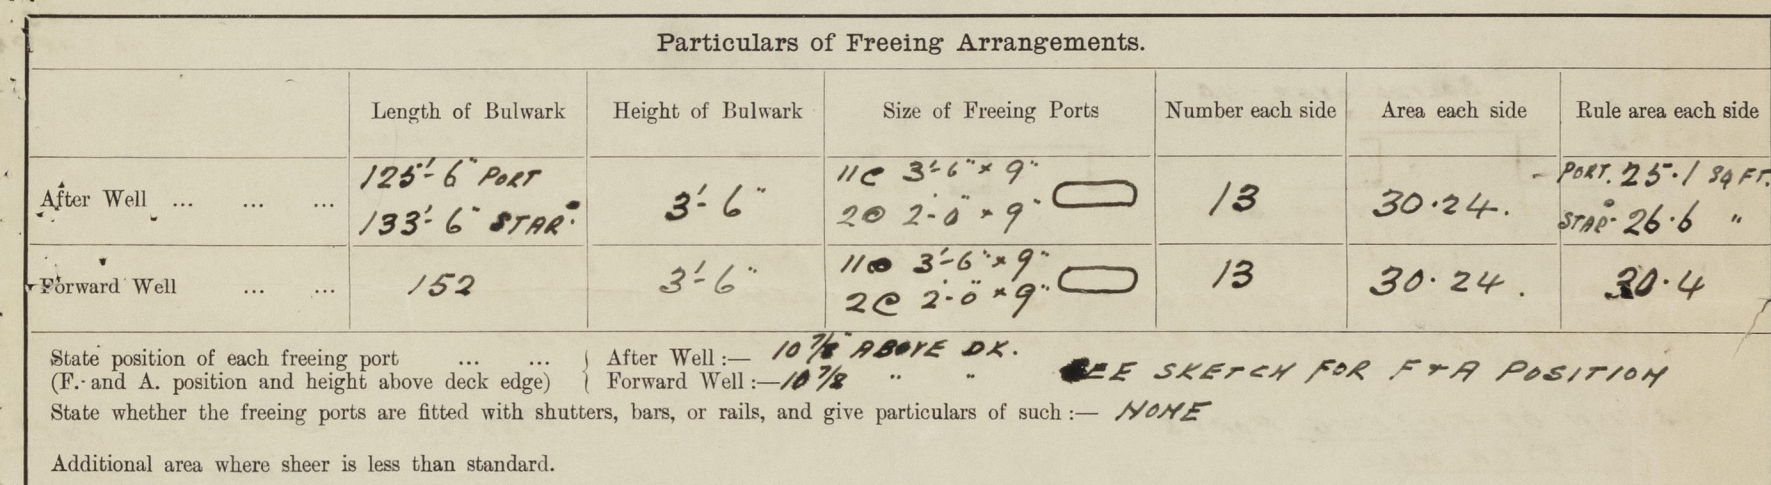 Particulars of Freeing Arrangements.
Length of Bulwark Height of Bulwark Size of Freeing Ports Number each side Area each side Rule area each side
After Well ... ... ... 125'-6" PORT 3'-6" 11@ 3'-6" × 9" 13 30.24. PORT. 25.1 SQ FT.
133'-6" STAR. 2@ 2'-0" × 9" STAR. 26.6 "
Forward Well ... ... 152 3'-6" 11@ 3'-6" × 9" 13 30.24. 30.4
2@ 2'-0" × 9"
State position of each freeing port ... ... { After Well :— 10 7/8" ABOVE DK.
(F. and A. position and height above deck edge) { Forward Well :— 10 7/8 " " SEE SKETCH FOR F & A POSITION
State whether the freeing ports are fitted with shutters, bars, or rails, and give particulars of such :— NONE
Additional area where sheer is less than standard.